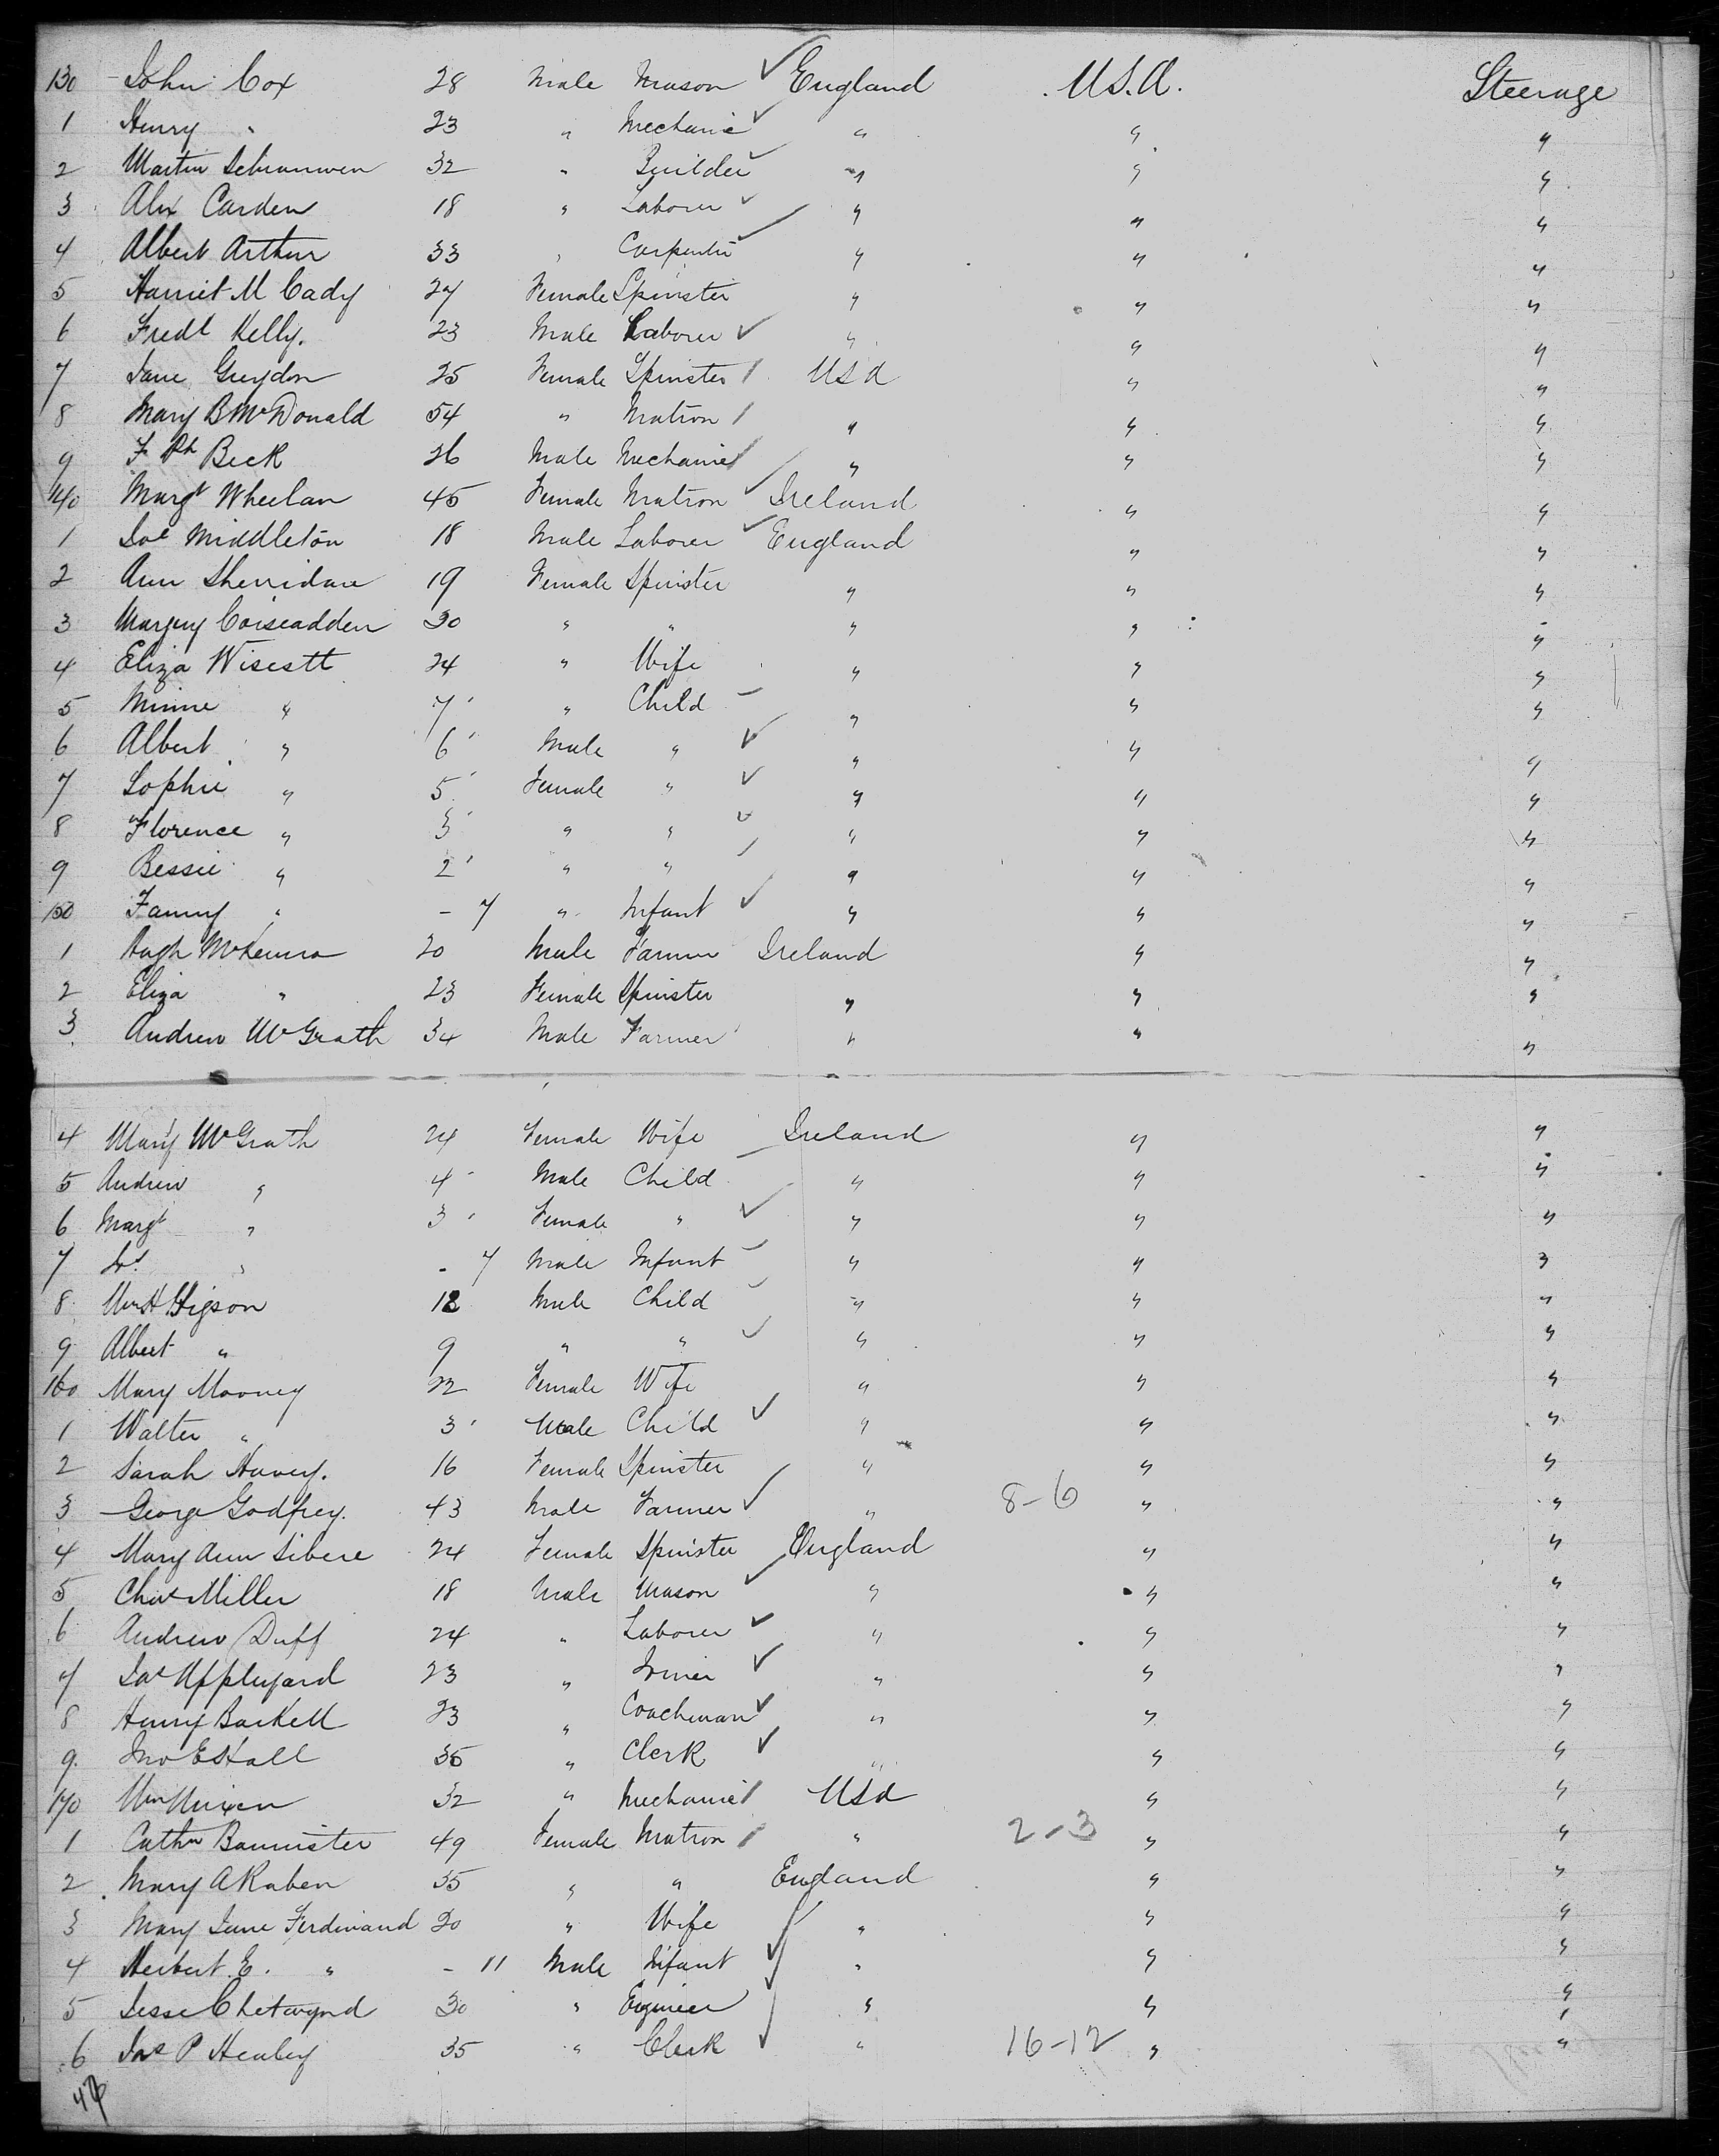 130 John Cox 28 Male Mason England U.S.A. Steerage
1 Henry " 23 " Mechanic " " "
2 Martin 32 " Builder " " "
3 Alex Carden 18 " Laborer " " "
4 Albert Arthur 33 " Carpenter " " "
5 Harriet M Cady 27 Female Spinster " " "
6 Fredk Kelly. 23 Male Laborer " " "
7 Jane Greydon 25 Female Spinster USA " "
8 Mary B McDonald 54 " Matron " " "
9 F Ph Beck 26 Male Mechanic " " "
140 Margt Wheelan 45 Female Matron Ireland " "
1 Middleton 18 Male Laborer England " "
2 Ann Sherridan 19 Female Spinster " " "
3 Margery 30 " " " " "
4 Eliza Wisestt 24 " Wife " " "
5 Minnie " 7 " Child " " "
6 Albert " 6 Male " " " "
7 Sophie " 5 Female " " " "
8 Florence " 3 " " " " "
9 Bessie " 2 " " " " "
150 Fanny " - 7 " Infant " " "
1 Hugh McKenna 20 Male Farmer Ireland " "
2 Eliza " 23 Female Spinster " " "
3 Andrew McGrath 34 Male Farmer " " "
4 Mary McGrath 24 Female Wife Ireland " "
5 Andrew " 4 Male Child " " "
6 Margt " 3 Female " " " "
7 " - 7 Male Infant " " "
8 Wm H Higson 12 Male Child " " "
9 Albert " 9 " " " " "
160 Mary Mooney 22 Female Wife " " "
1 Walter " 3 Male Child " " "
2 Sarah Havey. 16 Female Spinster " " "
3 George Godfrey. 43 Male Farmer " 8-6 " "
4 Mary Ann Sibere 24 Female Spinster England " "
5 Chas Miller 18 Male Mason " " "
6 Andrew Duff 24 " Laborer " " "
7 Jas Appleyard 23 " Joiner " " "
8 Henry Barkell 23 " Coachman " " "
9. Jno E Hall 35 " Clerk " " "
170 Wm 32 " Mechanic USA " "
1 Cathn Bannister 49 Female Matron " 2-3 " "
2 Mary A Raben 35 " " England " "
3 Mary Jane Ferdinand 20 " Wife " " "
4 Herbert E. " - 11 Male Infant " " "
5 Jesse Chetwynd 30 " Engineer " " "
6 Jas P Henley 35 " Clerk " 16-12 " "
47